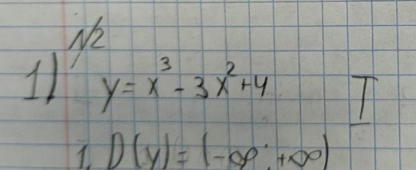 №2
1) y = x³ - 3x² + 4 I
1. D(y) = (-∞; +∞)